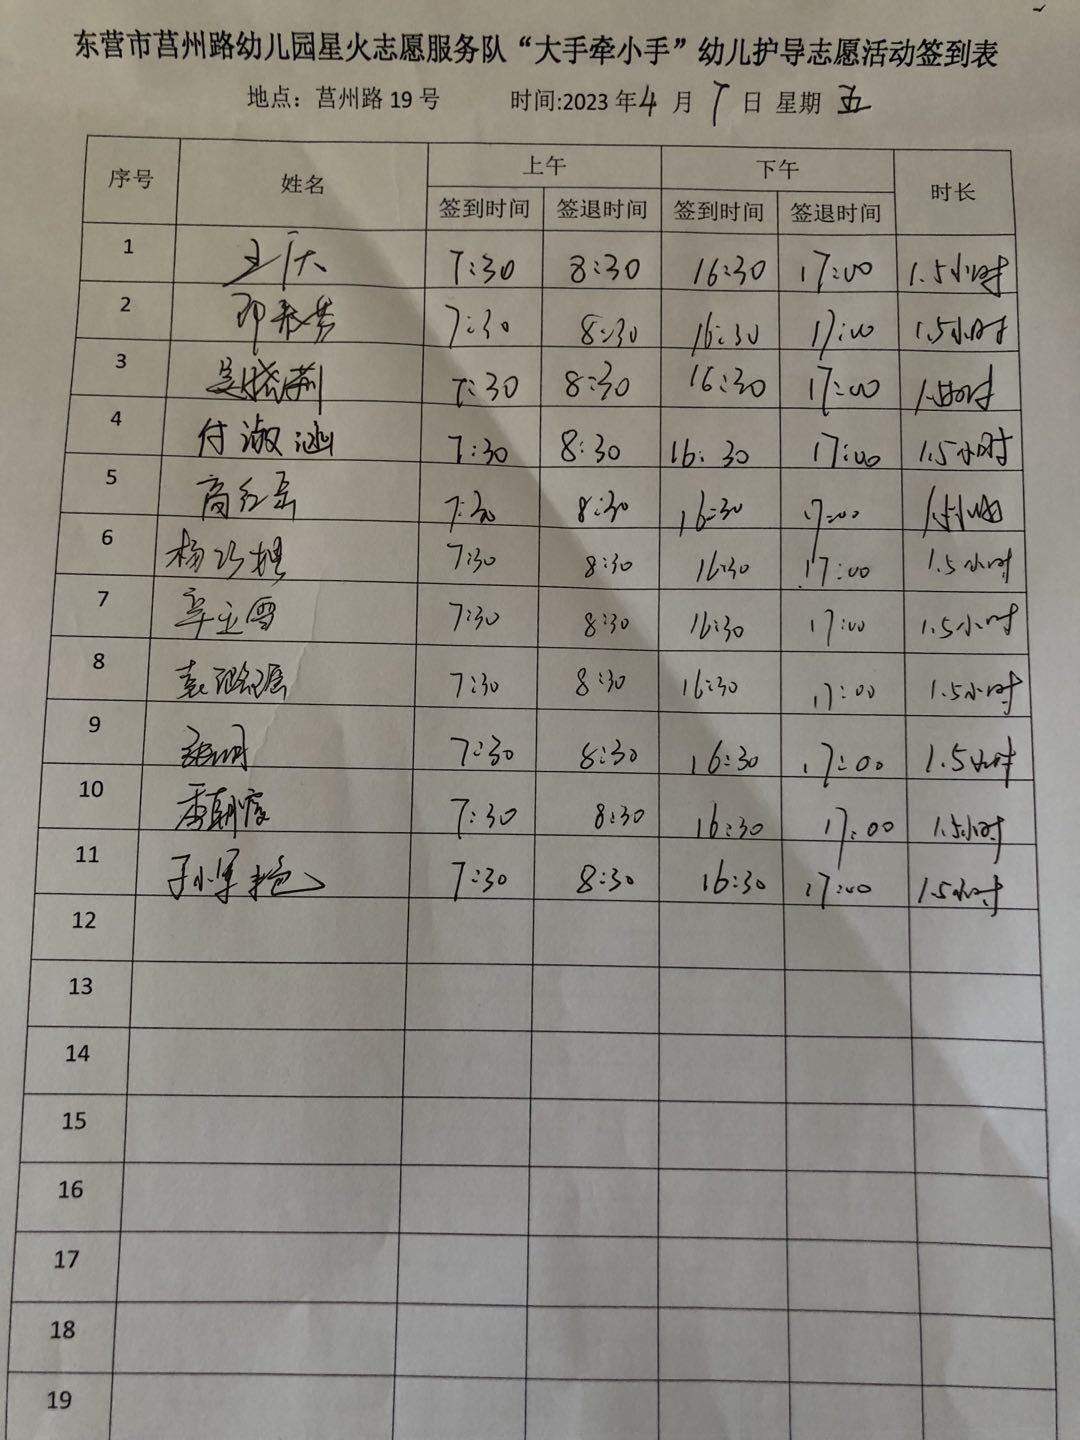 东营市莒州路幼儿园星火志愿服务队“大手牵小手”幼儿护导志愿活动签到表
地点：莒州路 19 号 时间:2023 年 4 月 7 日 星期 五
序号 姓名 上午 下午 时长
签到时间 签退时间 签到时间 签退时间
1 7:30 8:30 16:30 17:00 1.5小时
2 7:30 8:30 16:30 17:00 1.5小时
3 7:30 8:30 16:30 17:00 1.5小时
4 付淑涵 7:30 8:30 16:30 17:00 1.5小时
5 高红岳 7:30 8:30 16:30 17:00 1.5小时
6 7:30 8:30 16:30 17:00 1.5小时
7 7:30 8:30 16:30 17:00 1.5小时
8 7:30 8:30 16:30 17:00 1.5小时
9 7:30 8:30 16:30 17:00 1.5小时
10 季朝霞 7:30 8:30 16:30 17:00 1.5小时
11 7:30 8:30 16:30 17:00 1.5小时
12
13
14
15
16
17
18
19